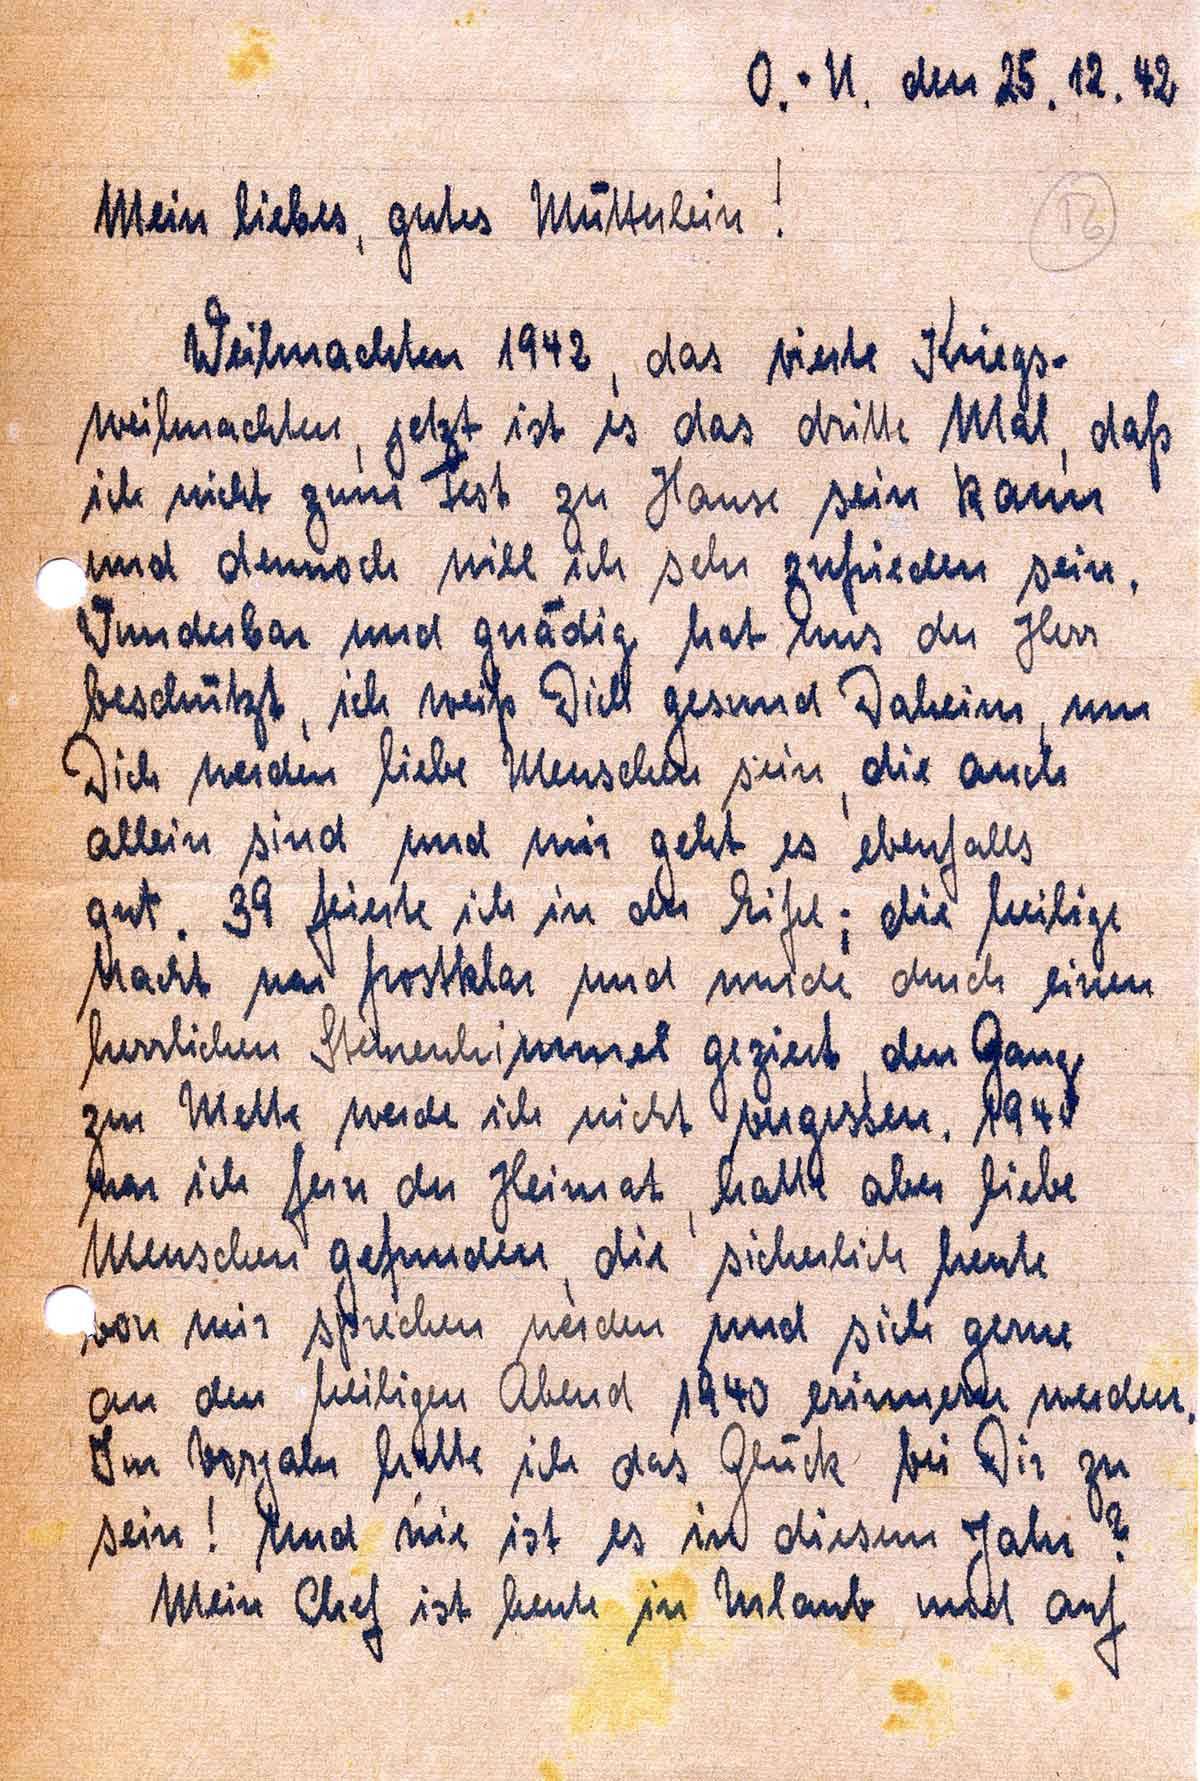 O.-U. den 25.12.42
Mein liebes, gutes Mütterlein!
Weihnachten 1942, das vierte Kriegs-
weihnachten, jetzt ist es das dritte Mal, daß
ich nicht zum Fest zu Hause sein kann
und dennoch will ich sehr zufrieden sein.
Wunderbar und gnädig hat uns der Herr
beschützt, ich weiß Dich gesund Daheim, um
Dich werden liebe Menschen sein, die auch
allein sind und mir geht es ebenfalls
gut. 39 feierte ich in der Eifel; die heilige
Nacht war frostklar und wurde durch einen
herrlichen Sternenhimmel geziert, den Gang
zur Mette werde ich nicht vergessen. 1940
war ich fern der Heimat, hatte aber liebe
Menschen gefunden, die sicherlich heute
von mir sprechen werden und sich gerne
an den heiligen Abend 1940 erinnern werden.
Im Vorjahr hatte ich das Glück bei Dir zu
sein! Und wie ist es in diesem Jahr?
Mein Chef ist heute in Urlaub und auf